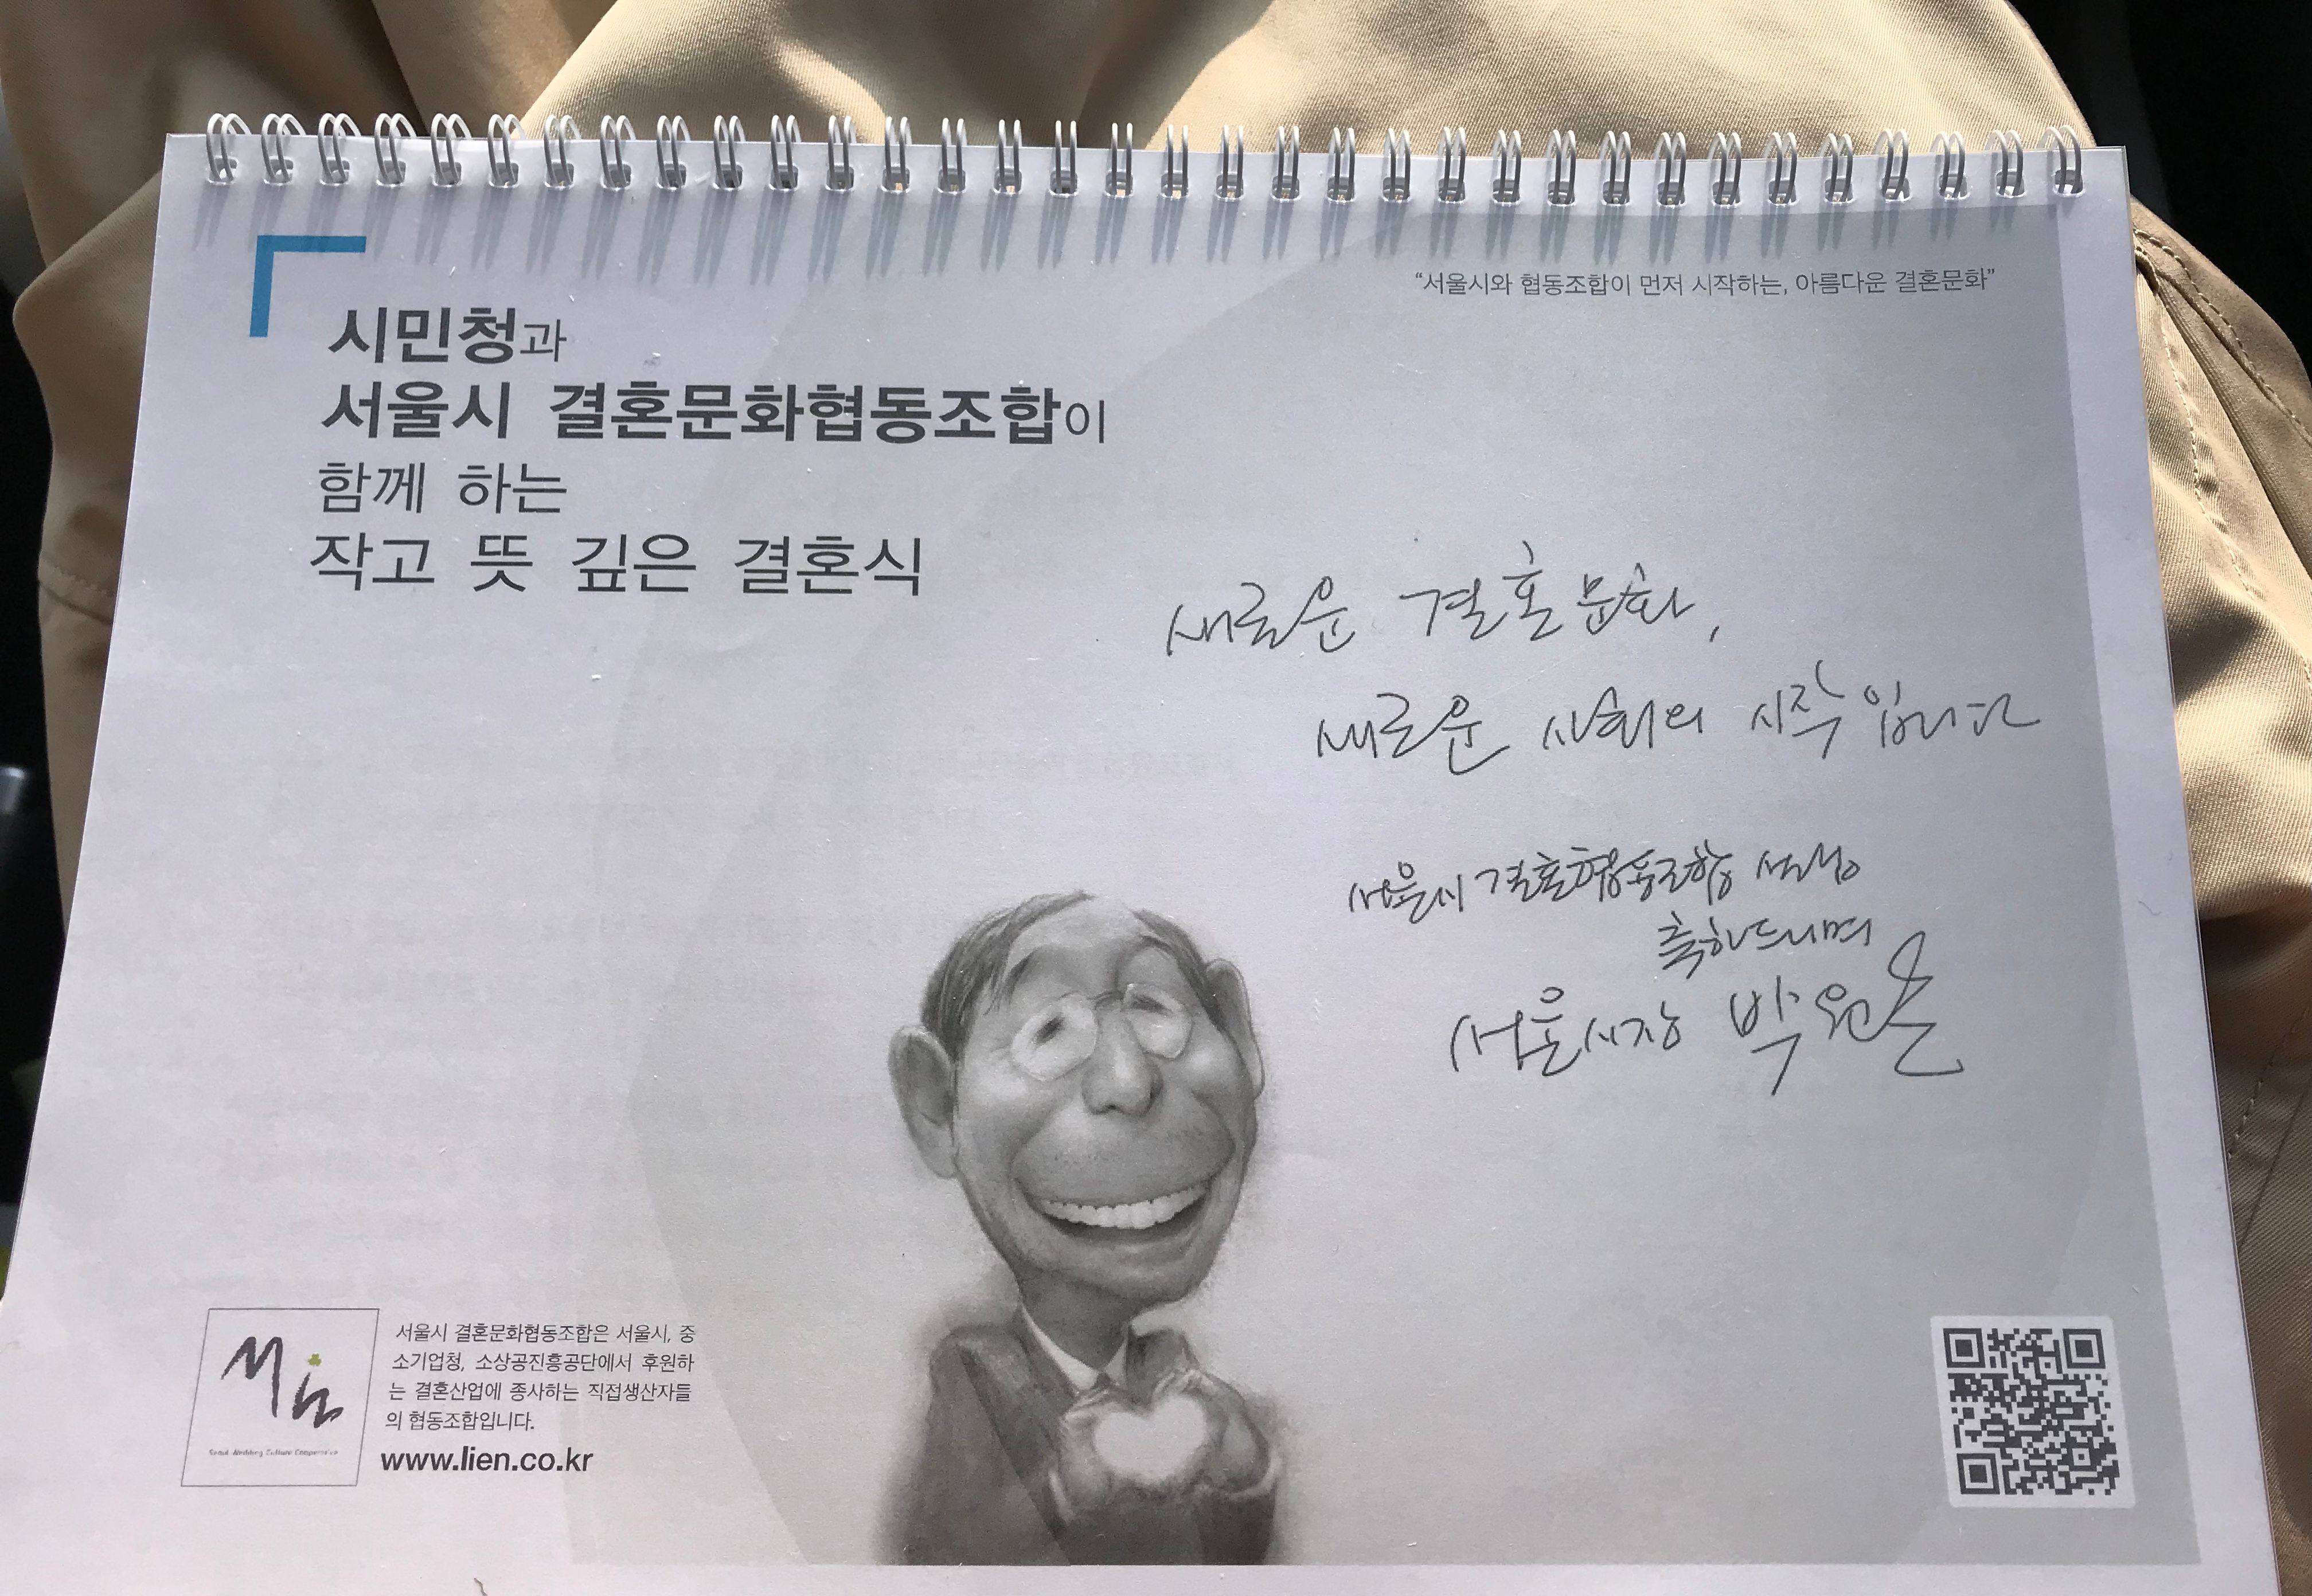 시민청과
서울시 결혼문화협동조합이
함께 하는
작고 뜻 깊은 결혼식
“서울시와 협동조합이 먼저 시작하는, 아름다운 결혼문화”
새로운 결혼문화,
새로운 사회의 시작입니다
서울시 결혼협동조합
축하드리며
서울시장 박원순
서울시 결혼문화협동조합은 서울시, 중
소기업청, 소상공진흥공단에서 후원하
는 결혼산업에 종사하는 직접생산자들
의 협동조합입니다.
www.lien.co.kr
Seoul Wedding Culture Cooperative